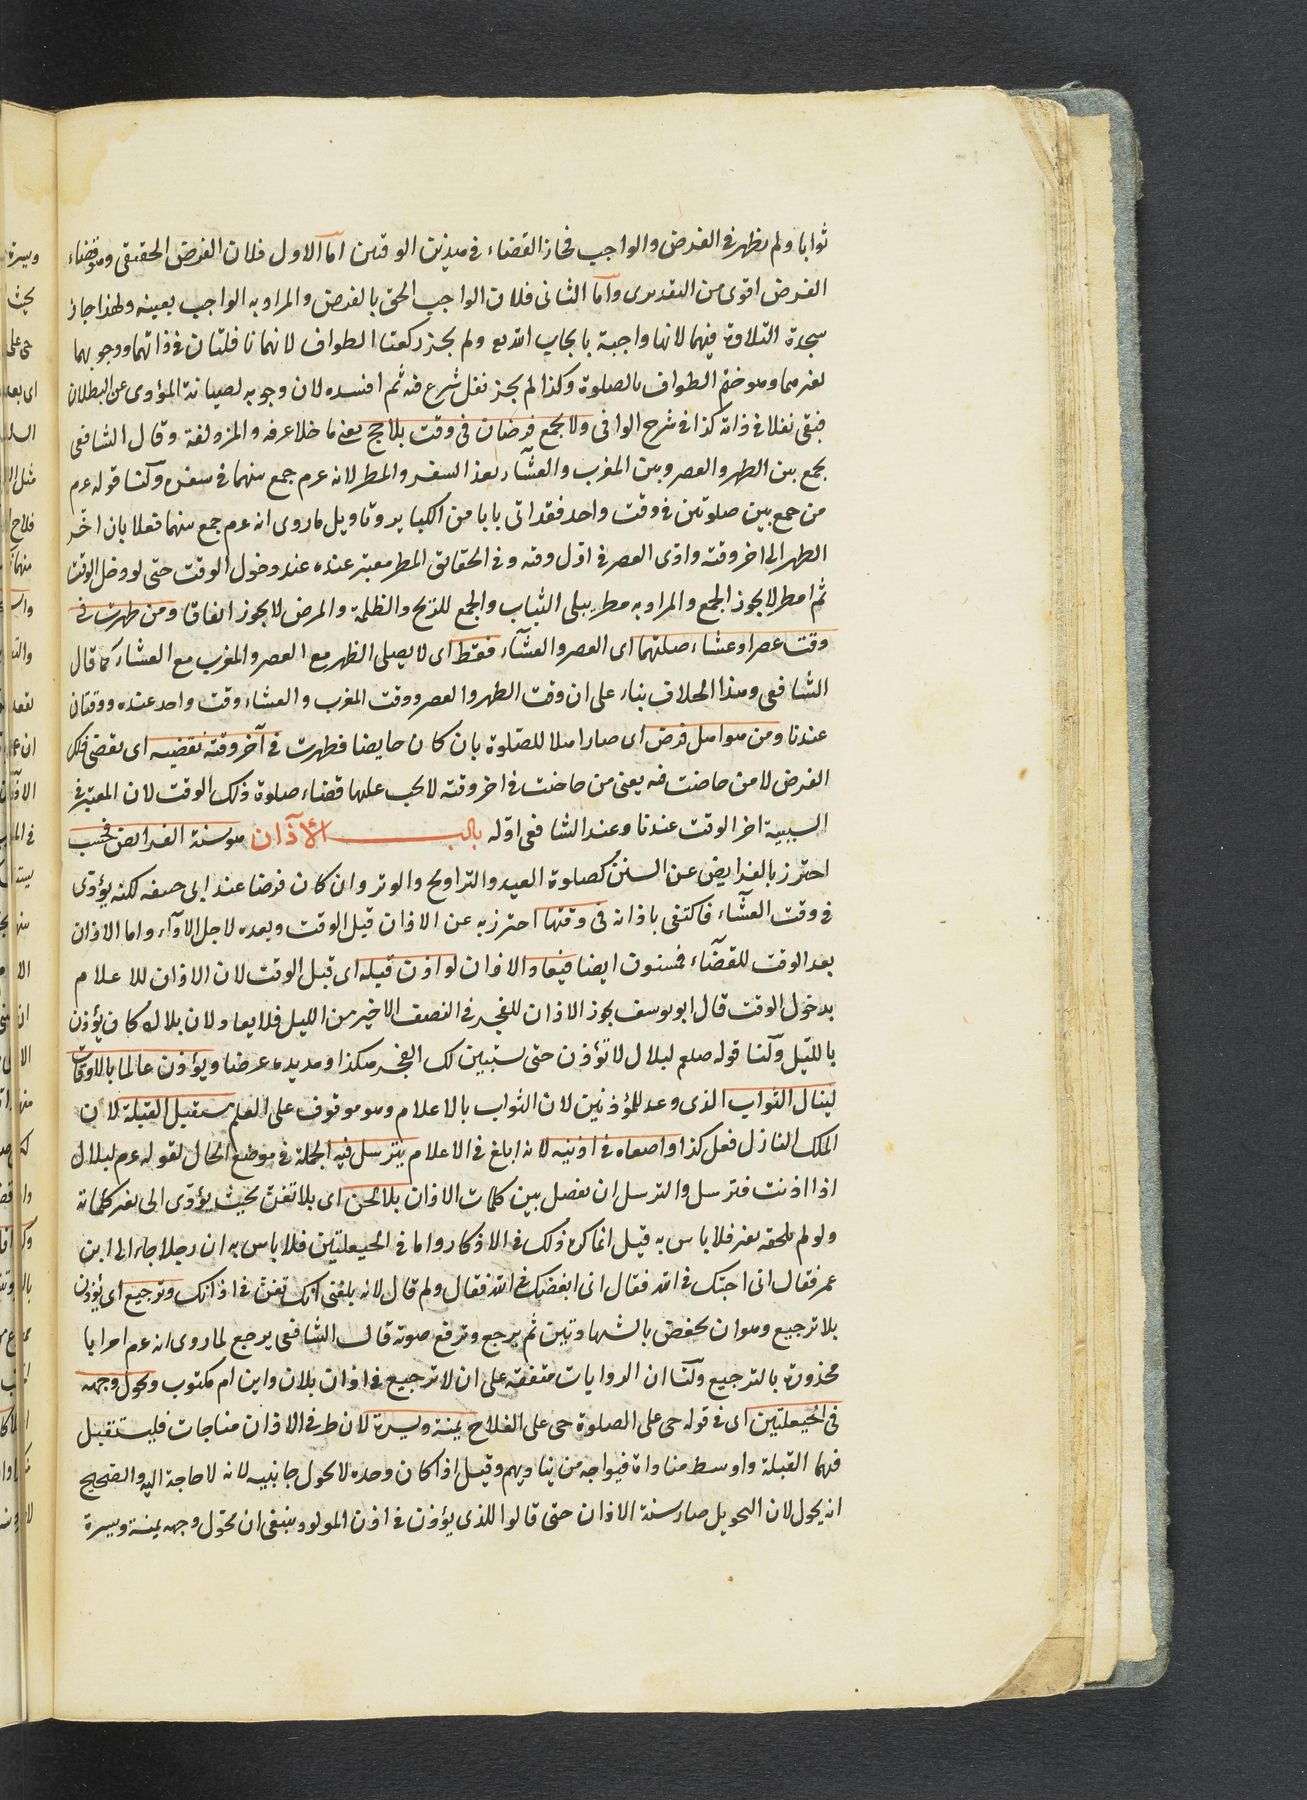 ثوابا ولم يظهر في الفرض والواجب فجاز القضاء في هذين الوقتين اما الاول فلان الفرض الحقيقى وهو قضاء
الفرض اقوى من التقديرى واما الثانى فلان الواجب الحق بالفرض والمراد به الواجب بعينه ولهذا جاز
سجدة التلاوة فيهما لانها واجبة بايجاب الله تع ولم يجز ركعتا الطواف لانهما نافلتان في ذاتهما ووجوبهما
لغيرهما وهو ختم الطواف بالصلوة وكذا لم يجز نفل شرع فيه ثم افسده لان وجوبه لصيانة المؤدى عن البطلان
فبقى نفلا في ذاته كذا في شرح الوافى ولا يجمع فرضان في وقت بلا حج يعنى ما خلا عرفه والمزدلفة وقال الشافعى
يجمع بين الظهر والعصر وبين المغرب والعشآء بعذر السفر والمطر لانه عم جمع بينهما في سفره ولنا قوله عم
من جمع بين صلوتين في وقت واحد فقد اتى بابا من الكباير وتاويل ما روى انه عم جمع بينهما فعلا بان اخّر
الظهر الى اخر وقته وادّى العصر في اوّل وقته وفى الحقايق المطر معتبر عنده عند دخول الوقت حتى لو دخل الوقت
ثم امطر لا يجوز الجمع والمراد به مطر يبلى الثياب والجمع للريح والظلمة والمرض لا يجوز اتفاقا ومن طهرت في
وقت عصر او عشاء صلتهما اى العصر والعشآء فقط اى لا يصلى الظهر مع العصر والمغرب مع العشاء كما قال
الشافعى وهذا الخلاف بناء على ان وقت الظهر والعصر ووقت المغرب والعشاء وقت واحد عنده ووقتان
عندنا ومن هو اهل فرض اى صار اهلا للصّلوة بان كان حايضا فطهرت في آخر وقته يقضيه اى يقضى ذلك
الفرض لا من حاضت فيه يعنى من حاضت في اخر وقته لا يجب عليها قضاء صلوة ذلك الوقت لان المعتبر في
السببية اخر الوقت عندنا وعند الشافعى اوّله باب الآذان هو سنة الفرائض فحسب
احترز بالفرايض عن السنن كصلوة العيد والتراويح والوتر وان كان فرضا عند ابى حنيفه لكنه يؤدّى
في وقت العشآء فاكتفى باذانه في وقتها احترز به عن الاذان قبل الوقت وبعده لاجل الادآء واما الاذان
بعد الوقت للقضآء فمسنون ايضا فيعاد الاذان لو اذن قبله اى قبل الوقت لان الاذان للاعلام
بدخول الوقت قال ابو يوسف يجوز الاذان للفجر في النصف الاخير من الليل فلا يعاد لان بلالا كان يؤذن
بالليل ولنا قوله صلعم لبلال لا تؤذن حتى يستبين لك الفجر هكذا ومد يده عرضا ويؤذن عالما بالاوقات
لينال الثواب الذى وعد للمؤذنين لان الثواب بالاعلام وهو موقوف على العلم مستقبل القبلة لان
الملك النازل فعل كذا واصبعاه في اذنيه لانه ابلغ في الاعلام يترسل فيه الجملة في موضع الحال لقوله عم لبلال
اذا اذنت فترسل والترسل ان يفصل بين كلمات الاذان بلا لحن اى بلا تغنّ بحيث يؤدّى الى تغير كلماته
ولو لم يلحقه تغير فلا باس به قيل انما كره ذلك في الاذكار واما في الحيعلتين فلا باس به ان رجلا جاء الى ابن
عمر فقال انى احبّك في الله فقال انى ابغضك في الله فقال ولم قال لانه بلغنى انك تغنّى في اذانك وترجيع اى يؤذن
بلا ترجيع وهو ان يخفض بالشهادتين ثم يرجع وترفع صوته قال الشافعى يرجع لما روى انه عم امر ابا
محذورة بالترجيع ولنا ان الروايات متفقه على ان لا ترجيع في اذان بلال وابن ام مكتوب ويحول وجهه
في الحيعلتين اى في قوله حى على الصلوة حى على الفلاح يمنة ويسرة لان طرفى الاذان مناجات فليستقبل
فيهما القبلة واوسط مناداة فيواجه من يناديهم وقيل اذا كان وحده لا يحول جانبيه لانه لا حاجة اليه والصحيح
انه يحول لان التحويل صار سنة الاذان حتى قالوا للذى يؤذن في اذن المولود ينبغى ان يحوّل وجهه يمنة ويسرة